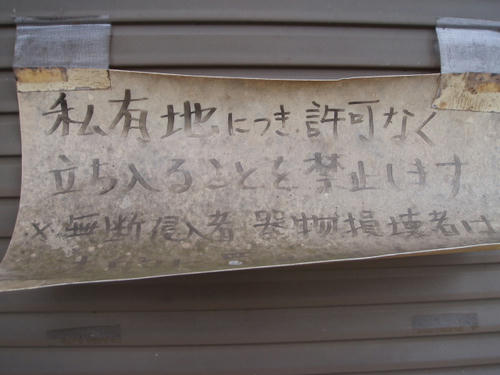 私有地につき許可なく
立ち入ることを禁止します
※無断侵入者 器物損壊者は